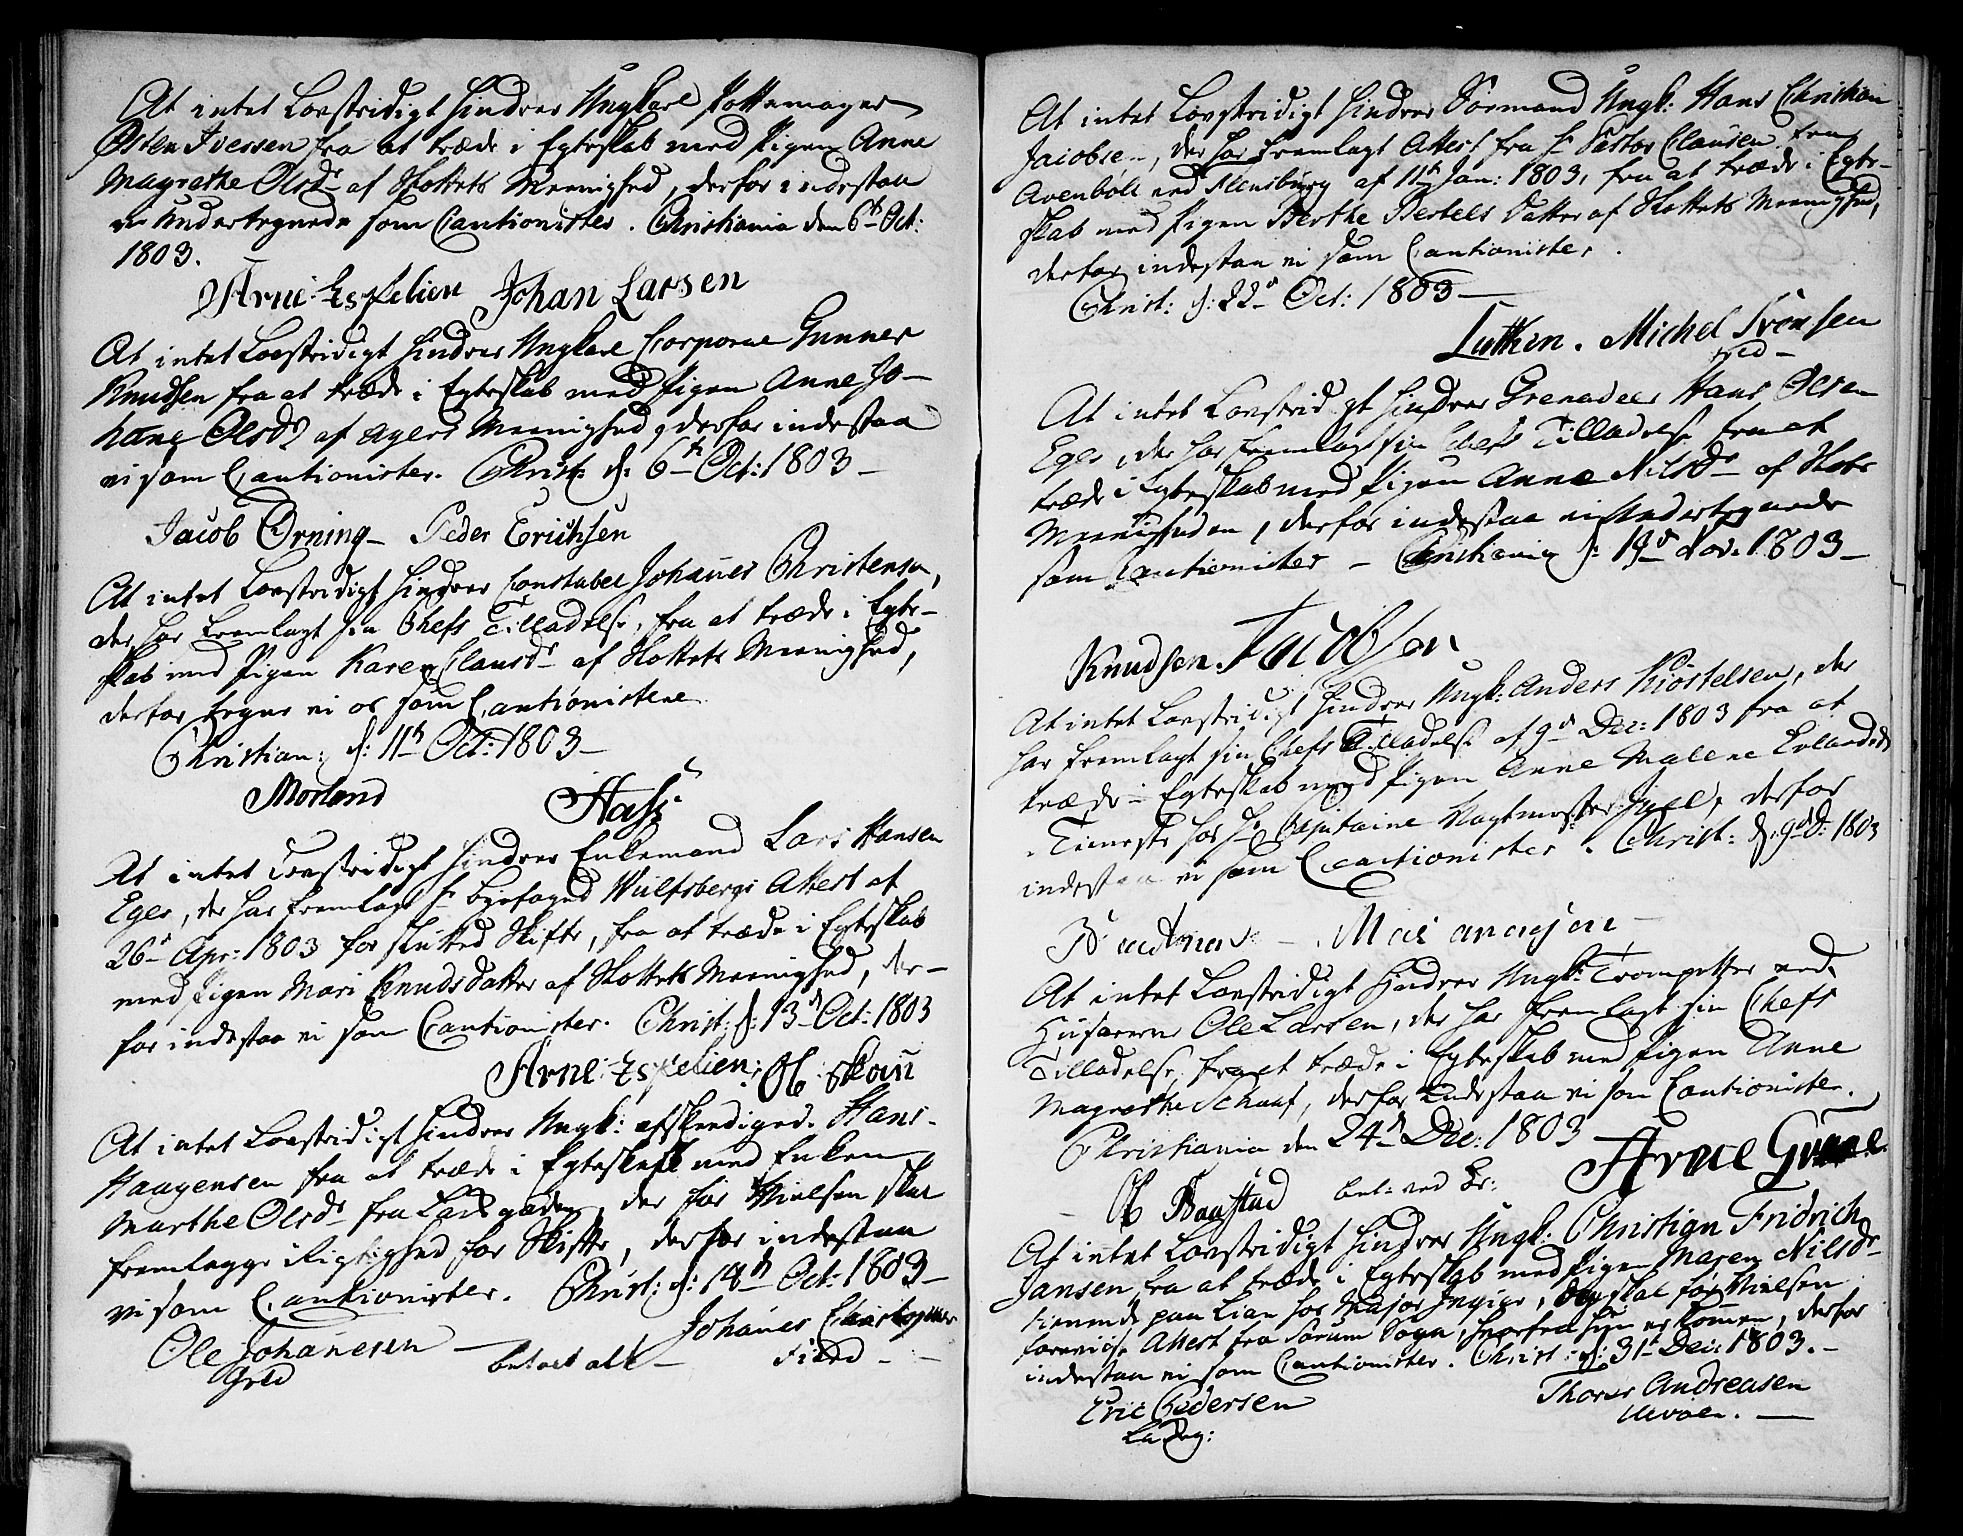 At intet Lovstridigt hindrer Ungkarl Pottemager
Østen Ivessen fra at træde i Egteskab med Pigen Anne
Magrethe Olsdr af Slottets Meenighed, derfor indestaa
vi Undertegnede som Cautionister. Christiania den 6te Oct:
1803.
Arne Espelien Johan Larsen
At intet Lovstridigt hindrer Ungkarl Corporal Gunner
Knudsen fra at træde i Egteskab med Pigen Anne Jo-
hane Olsdr af Agers Meenighed, derfor indestaa
vi som Cautionister. Christ: d: 6te Oct: 1803 -
Jacob Ørning - Peder Erichsen
At intet Lovstridigt hindrer Constabel Johanes Christensen,
der har fremlagt sin Chefs Tilladelse, fra at træde i Egte-
skab med Pigen Karen Clausdr af Slottets Meenighed,
derfor tegne vi os som Cautionistere
Christian: d: 11te Oct: 1803 -
Morland Hass
At intet Lovstridigt hindrer Enkemand Lars Hansen
Eger, der har fremlagt Hr Byefoged Wulfsbergs Attest af
26de Apr: 1803 for slutted Skifte, fra at træde i Egteskab
med Pigen Mari Knudsdatter af Slottets Meenighed, der-
for indestaa vi som Cautionister. Christ: d: 13de Oct: 1803
Arne Espelien: H: Skou
At intet Lovstridigt hindrer Ungk: afskediged Hans
Haagensen fra at træde i Egteskab med Enken
Marthe Olsdr fra Ladegaden, der før Vielsen skal
fremlægge Rigtighed for Skifte, derfor indestaa
vi som Cautionister. Christ: d: 18de Oct: 1803 -
Ole Johanesen - Johanes
betalt alt -
At intet Lovstridigt hindrer Sørmand Ungk: Hans Christian
Jacobsen, der har fremlagt Attest fra Hr Pastor Clausen fra
Avenbøll ved Flensburg af 11te Jan: 1803, fra at træde i Egte-
skab med Pigen Berthe Bertels Datter af Slottets Meenighed,
derfor indestaa vi som Cautionister.
Christ: d: 22de Oct: 1803 -
Lutken. Michel Svensen
At intet Lovstridigt hindrer Grenadeer Hans Olsen
Eger, der har fremlagt sin Chefs Tilladelse fra at
træde i Egteskab med Pigen Anne Nilsdr af Slots
Meenigheden, derfor indestaa vi Undertegnede
som Cautionister - Christiania d: 19de Nov: 1803 -
Knudsen. Jacobsen
At intet Lovstridigt hindrer Ungk: Anders Kiøstelsen, der
har fremlagt sin Chefs Tilladelse af 9de Dec: 1803 fra at
træde i Egteskab med Pigen Anne Malene Erlandsdr
i Tieneste hos Hr Capitaine Vagtmester Juel, derfor
indestaa vi som Cautionister. Christ: d: 9de D: 1803
At intet Lovstridigt hindrer Ungk: Trompetter ved
Husarerne Ole Larsen, der har fremlagt sin Chefs
Tilladelse, fra at træde i Egteskab med Pigen Anne
Magrethe Schaaf, derfor indestaa vi som Cautionister.
Christiania den 24de Dec: 1803
Arne
bet: ved
At intet Lovstridigt hindrer Ungk: Christian Fridrich
Jansen fra at træde i Egteskab med Pigen Maren Nilsdr
tienende paa Lian hos Major Ingier, der skal før Vielsen
forevise Attest fra Sørum Sogn, hvorfra hun er kommen, derfor
indestaa vi som Cautionister. Christ: d: 31te Dec: 1803. -
Eric Pedersen Thorer Andreasen
Ladeg: